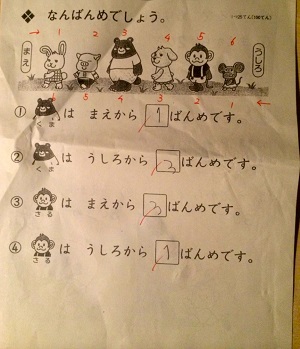 ❖ なんばんめでしょう。
→ 1 2 3 4 5 6
まえ うしろ
6 5 4 3 2 1 ←
① くま は まえから 1 ばんめです。
② くま は うしろから 3 ばんめです。
③ さる は まえから 3 ばんめです。
④ さる は うしろから 1 ばんめです。